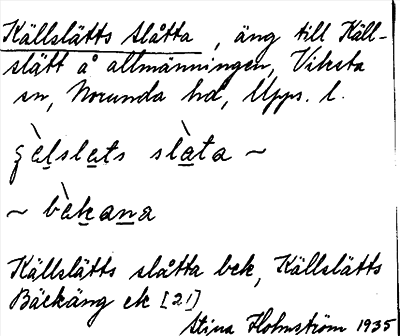 Källslätts slåtta, äng till Käll-
slätt å allmänningen, Viksta
sn, Norunda hd, Upps. l.
~
~ bèkana
Källslätts slåtta bek, Källslätts
Bäckäng ek [21]
Stina Holmström 1935